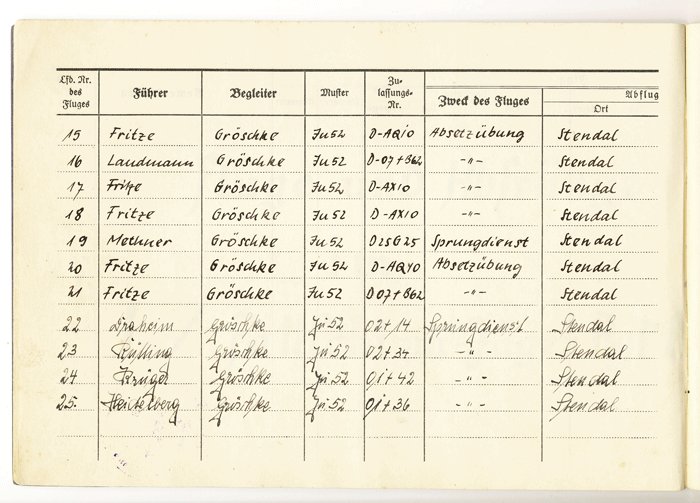 Lfd. Nr. des Fluges Führer Begleiter Muster Zu-lassungs-Nr. Zweck des Fluges Abflug Ort
15 Fritze Gröschke Ju 52 D-AQIO Absetzübung Stendal
16 Landmann Gröschke Ju 52 D-07+B62 -"- Stendal
17 Fritze Gröschke Ju 52 D-AXIO -"- Stendal
18 Fritze Gröschke Ju 52 D-AXIO -"- Stendal
19 Methner Gröschke Ju 52 D25G25 Sprungdienst Stendal
20 Fritze Gröschke Ju 52 D-AQYO Absetzübung Stendal
21 Fritze Gröschke Ju 52 D07+B62 -"- Stendal
22 Draheim Gröschke Ju 52 02+14 Sprungdienst Stendal
23 Gröschke Ju 52 02+34 -"- Stendal
24 Krüger Gröschke Ju 52 01+42 -"- Stendal
25. Heidelberg Gröschke Ju 52 01+36 -"- Stendal